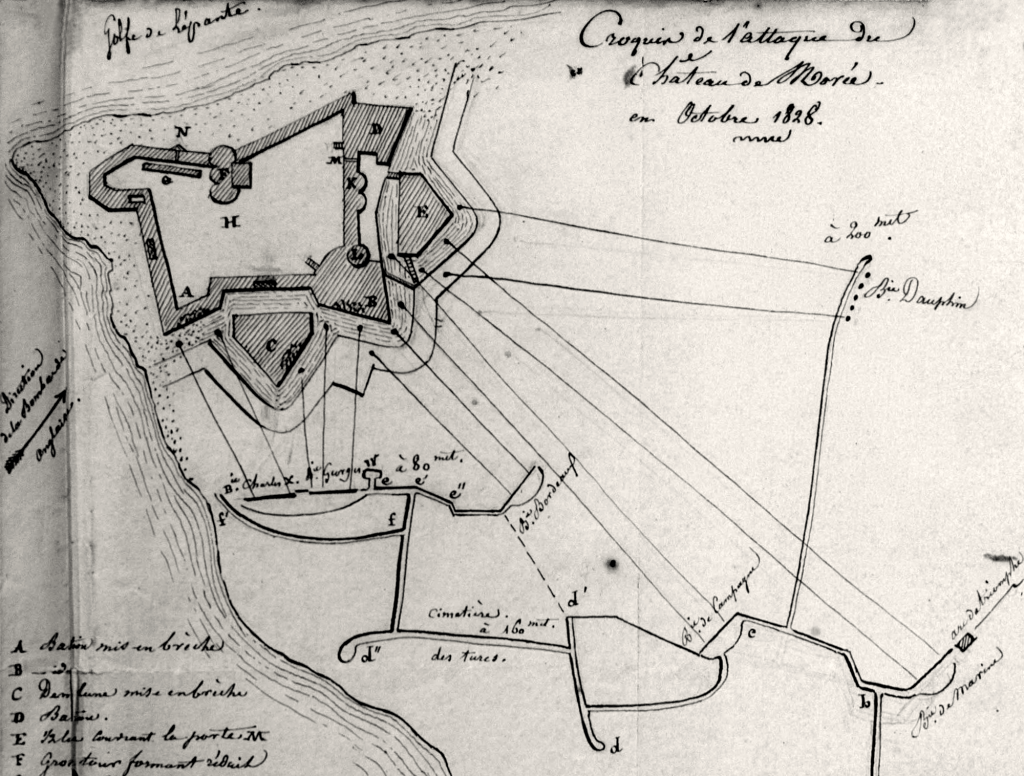 Golfe de Lépante.
Croquis de l'attaque du
Château de Morée
en Octobre 1828.
N
D
M
F
K
E
H
L
à 200 met.
A
B
Bie Dauphin
C
Direction
de la Bombarde
Anglaise
Bie Charles X.
Bie Georges
N
à 80 met.
e
e'
e''
Bie Bordeaux
f'
f
Cimetière.
à 160 met.
des turcs.
d'
d''
d
Bie de Campagne
c
b
arc de triomphe
Bie de Marine
A Bastion mis en brèche
B _ id
C Demi lune mise en brèche
D Bastion.
E couvrant la porte M
F Gros tour formant réduit